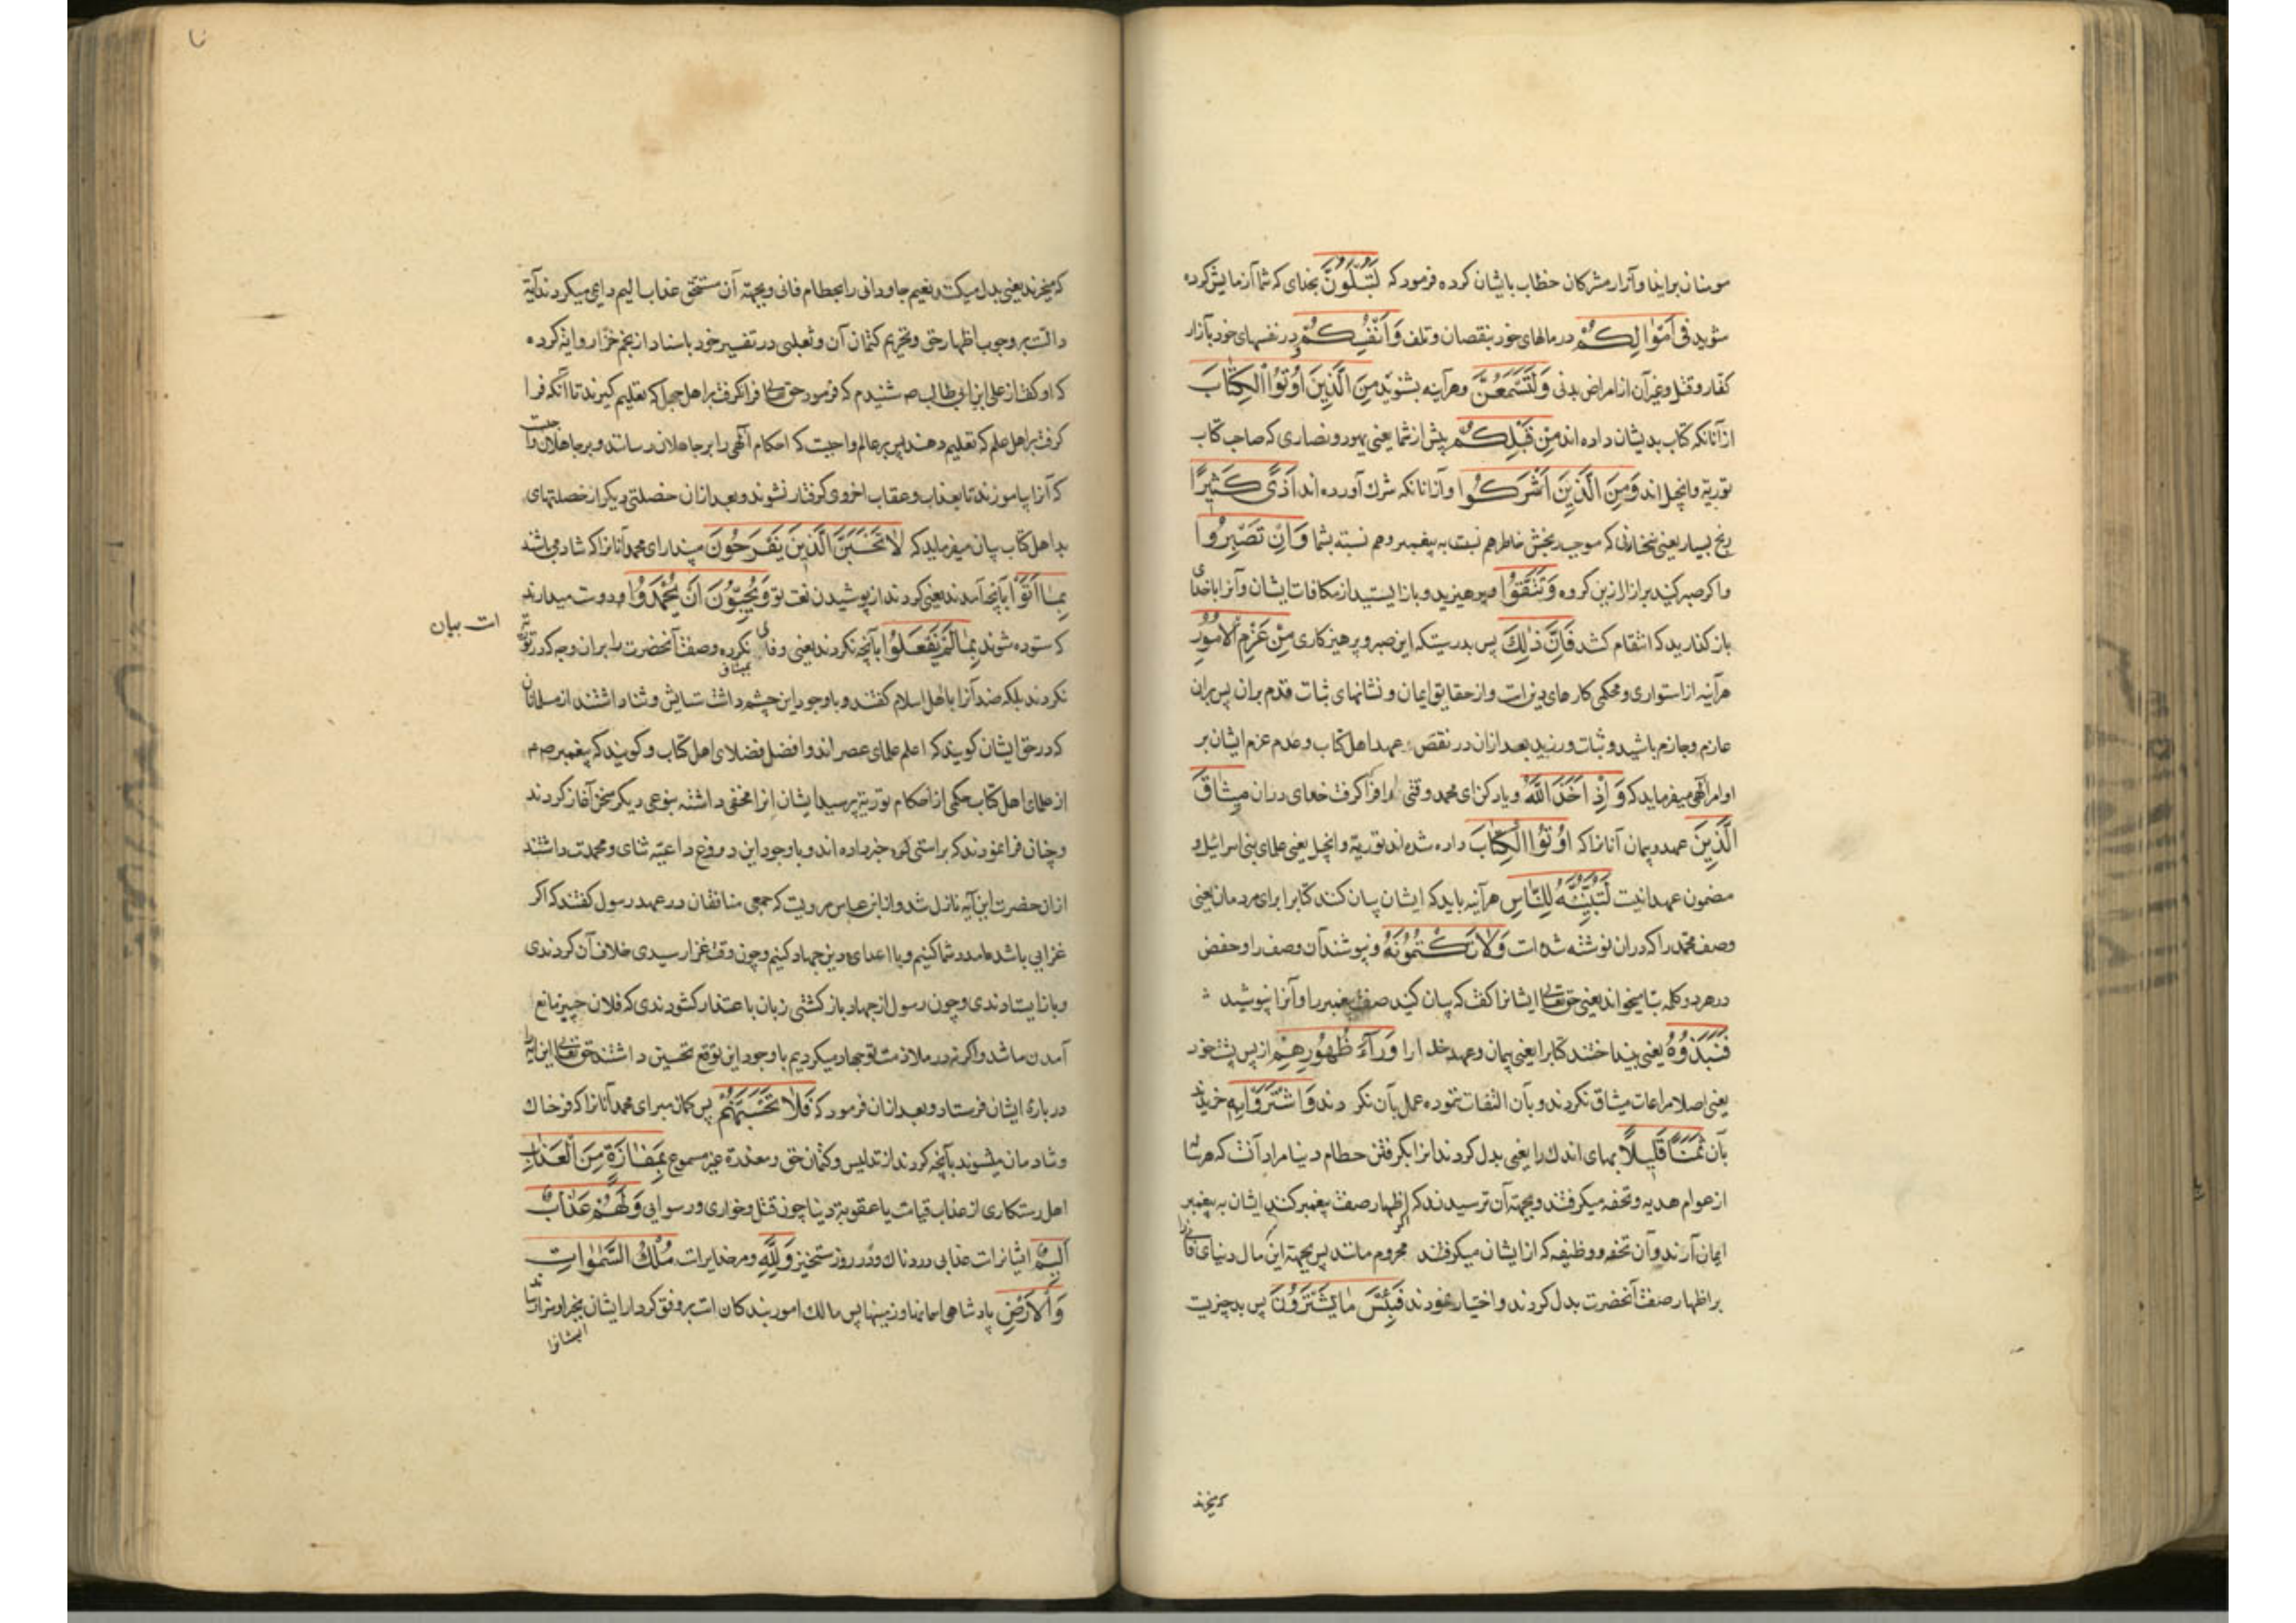 مومنان برایذا وآزار مشرکان خطاب بایشان کرده فرمود که لَتُبْلَوُنَّ بخدای که شما آزمایش کرده
شوید فی اَمْوَالِکُمْ درمالهای خود بنقصان وتلف وَاَنْفُسِکُمْ ودر نفسهای خود بآزار
کفار وقتل وغیر آن از امراض بدنی وَلَتَسْمَعُنَّ وهرآینه بشنوید مِنَ الَّذِینَ اُوتُوا الْکِتَابَ
از آنانکه کتاب بدیشان داده اند مِنْ قَبْلِکُمْ پیش از شما یعنی یهود ونصاری که صاحب کتاب
توریة وانجیل اند وَمِنَ الَّذِینَ اَشْرَکُوا وازآنانکه شرک آورده اند اَذًی کَثِیرًا
رنج بسیار یعنی سخنانی که موجب رنجش خاطر هم نسبت به پیغمبر وهم نسبة بشما وَاِنْ تَصْبِرُوا
واکر صبر کنید برآزار ازین کروه وَتَتَّقُوا وپرهیزید وبازایستید از مکافات ایشان وآنرا باخدای
بازکذارید که انتقام کشد فَاِنَّ ذٰلِکَ پس بدرستیکه این صبر وپرهیزکاری مِنْ عَزْمِ الْاُمُورِ
هرآینه از استواری ومحکمی کارهای دین است واز حقایق ایمان ونشانهای ثبات قدم بران پس بران
عازم وجازم باشید وثبات ورزید بعد ازان در نقض عهد اهل کتاب وعدم عزم ایشان بر
اوامر الهی میفرماید که وَاِذْ اَخَذَ اللّٰهُ ویاد کن ای محمد وقتی را که فرا کرفت خدای دران مِیثَاقَ
الَّذِینَ عهد وپیمان آنانرا که اُوتُوا الْکِتَابَ داده شده اند توریة وانجیل یعنی علمای بنی اسرائیل و
مضمون عهد اینست لَتُبَیِّنُنَّهُ لِلنَّاسِ هرآینه باید که ایشان بیان کنند کتابرا برای مردمان یعنی
وصف محمد را که دران نوشته شده است وَلَا تَکْتُمُونَهُ ونپوشند آن وصف را وحفص
در هر دو کلمه بتا میخواند یعنی حق تعالی ایشانرا کفت که بیان کنید صفت پیغمبر را وآنرا نپوشید
فَنَبَذُوهُ یعنی بینداختند کتابرا یعنی پیمان وعهد خدا را وَرَآءَ ظُهُورِهِمْ از پس پشت خود
یعنی اصلا مراعات میثاق نکردند وبآن التفات ننموده عمل بآن نکردند وَاشْتَرَوْا بِهِ خریدند
بآن ثَمَنًا قَلِیلًا بهای اندک را یعنی بدل کردند انرا بکرفتن حطام دنیا مراد آنست که هرسال
از عوام هدیه وتحفه میکرفتند وبجهة آن ترسیدند که اکر اظهار صفت پیغمبر کنند ایشان به پیغمبر
ایمان آرند وآن تحفه ووظیفه که از ایشان میکرفتند محروم مانند پس بجهة این مال دنیای فانی را
براظهار صفت آنحضرت بدل کردند واختیار نمودند فَبِئْسَ مَا یَشْتَرُونَ پس بد چیزیست
که میخرند
که میخرند یعنی بدل میکنند نعیم جاودانی را بحطام فانی وبجهة آن مستحق عذاب الیم دایمی میکردند آیة
دالست بر وجوب اظهار حق وتحریم کتمان آن وثعلبی در تفسیر خود باسناد از نجم خزار روایة کرده
که او کفت از علی ابن ابی طالب ص شنیدم که فرمود حق تعالی فرا نکرفت بر اهل جهل که تعلیم کیرند تا آنکه فرا
کرفت بر اهل علم که تعلیم دهند پس بر عالم واجبست که احکام الهی را بر جاهلان رساند وبر جاهلان واجبست
که آنرا بیاموزند تا بعذاب وعقاب اخروی کرفتار نشوند وبعد ازان خصلتی دیکر از خصلتهای
بد اهل کتاب بیان میفرماید که لَا تَحْسَبَنَّ الَّذِینَ یَفْرَحُونَ مپندار ای محمد آنانرا که شاد می باشند
بِمَا اَتَوْا بآنچه آمدند یعنی کردند از پوشیدن نعت تو وَیُحِبُّونَ اَنْ یُحْمَدُوا ودوست میدارند
که ستوده شوند بِمَا لَمْ یَفْعَلُوا بآنچه نکردند یعنی وفای بمیثاق نکرده وصفت آنحضرت را بران وجه که در توریة
است بیان
نکردند بلکه ضد آنرا با اهل اسلام کفتند وباوجود این چشم داشت ستایش وثنا داشتند از مسلمانان
که در حق ایشان کویند که اعلم علمای عصر اند وافضل فضلای اهل کتاب وکویند که پیغمبر ص م
از علمای اهل کتاب حکمی از احکام توریة پرسید ایشان انرا مخفی داشته بنوعی دیکر سخن آغاز کردند
وچنان فرا نمودند که براستی خبر داده اند وباوجود این دروغ داعیه ثنای ومحمدت داشتند
ازان حضرت این آیه نازل شد واز ابن عباس مرویست که جمعی منافقان در عهد رسول کفتند که اکر
غزایی باشد ما مدد شما کنیم وبا اعدای دین جهاد کنیم وچون وقت غزا رسیدی خلاف آن کردندی
وبازایستادندی وچون رسول از جهاد بازکشتی زبان باعتذار کشودندی که فلان چیز مانع
آمدن ما شد واکر نه در ملازمت تو جهاد میکردیم باوجود این توقع تحسین داشتند حق تعالی این آیه
درباره ایشان فرستاد وبعد ازان فرمود که فَلَا تَحْسَبَنَّهُمْ پس کمان مبر ای محمد آنانرا که فرحناک
وشادمان میشوند بآنچه کردند از تدلیس وکتمان حق ومعذرة غیر مسموع بِمَفَازَةٍ مِنَ الْعَذَابِ
اهل رستکاری از عذاب قیامت یا عقوبة دنیا چون قتل وخواری ورسوایی وَلَهُمْ عَذَابٌ
اَلِیمٌ ایشانراست عذابی دردناک در روز رستخیز وَلِلّٰهِ ومر خدایراست مُلْکُ السَّمٰوَاتِ
وَالْاَرْضِ پادشاهی اسمانها وزمینها پس مالک امور بندکان است بر وفق کردار ایشان بجزا
ایشانرا